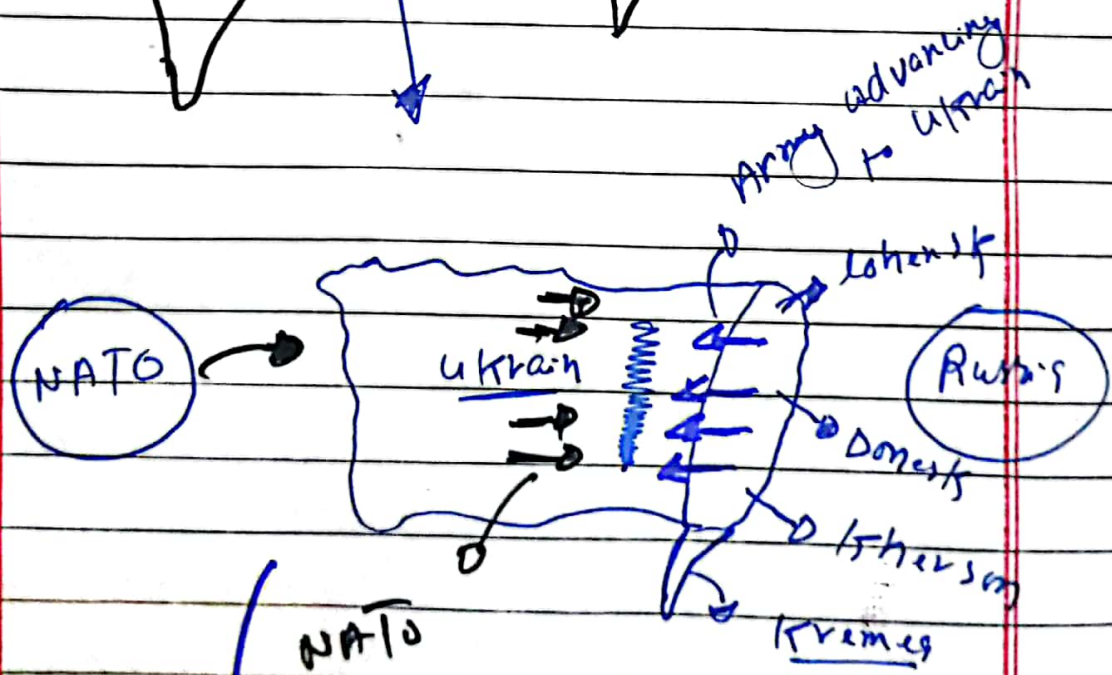 Army advancing
to Ukrain
Lohensk
NATO
Ukrain
Russia
Donesk
Kherson
NATO
Kremea